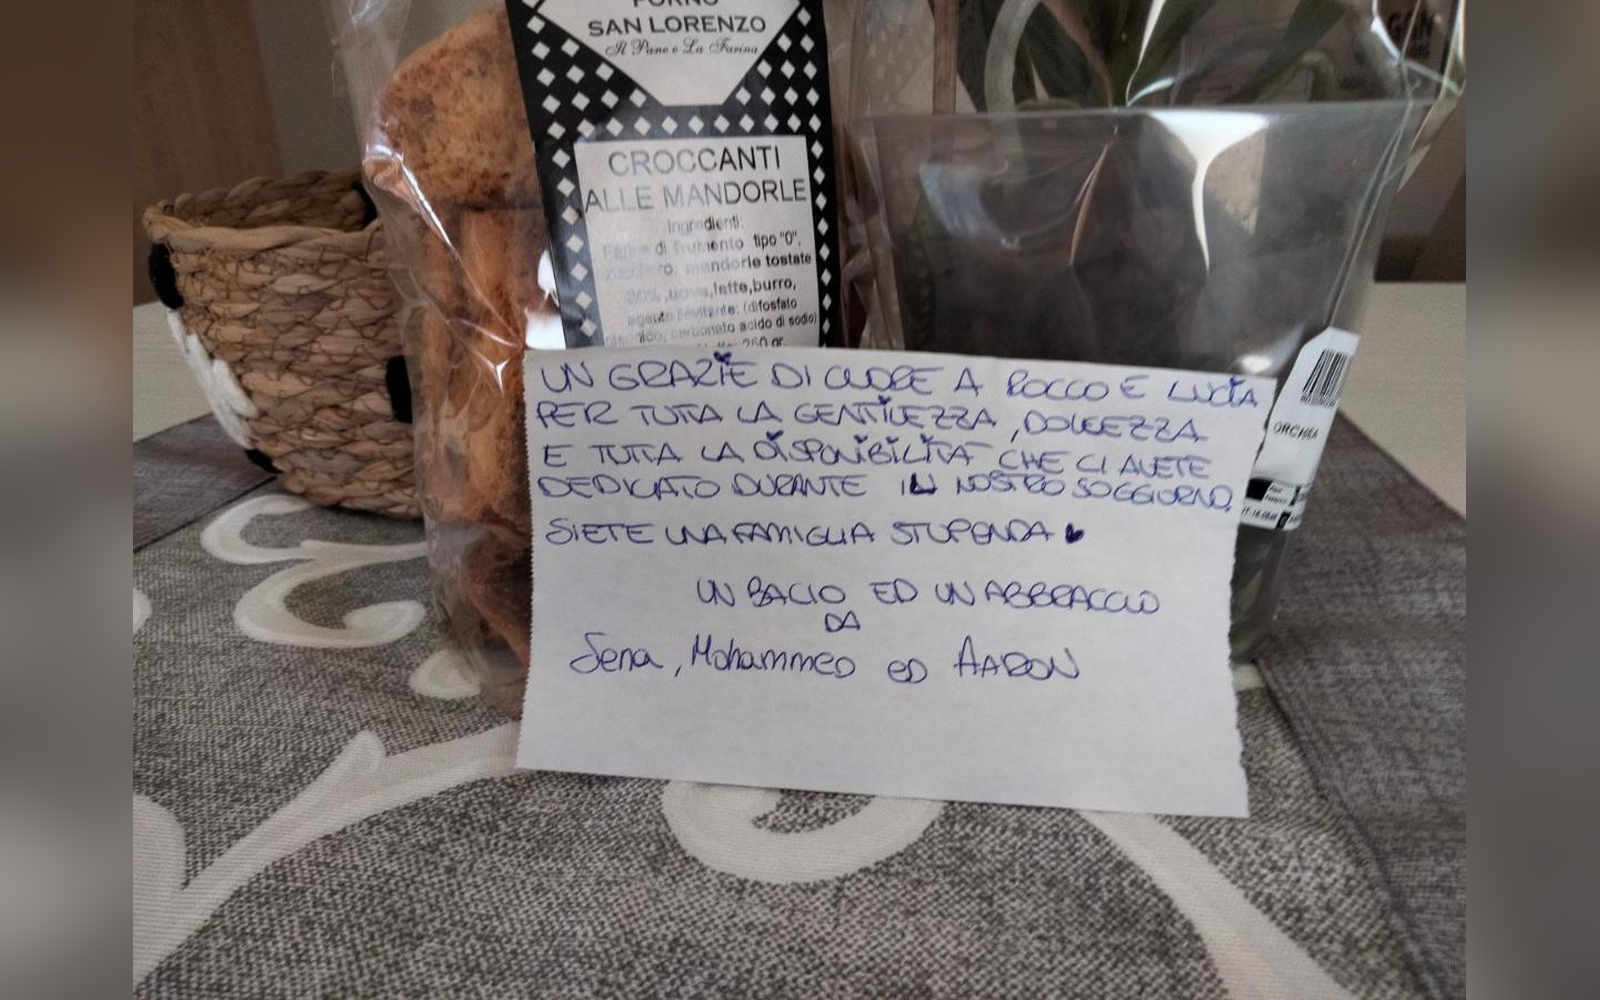 FORNO
SAN LORENZO
Il Pane e La Farina
CROCCANTI
ALLE MANDORLE
Ingredienti:
Farina di frumento tipo "0",
zucchero, mandorle tostate
20%, uova, latte, burro,
agente lievitante: (difosfato
carbonato acido di sodio)
250 gr.
ORCHIDEA
UN GRAZIE DI CUORE A ROCCO E LUCIA
PER TUTTA LA GENTILEZZA, DOLCEZZA
E TUTTA LA DISPONIBILITA' CHE CI AVETE
DEDICATO DURANTE IL NOSTRO SOGGIORNO.
SIETE UNA FAMIGLIA STUPENDA ♥
UN BACIO ED UN ABBRACCIO
DA
Sena, Mohammed ED AARON